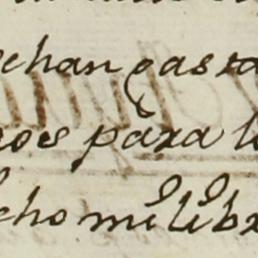 echan gasta
nos para lo
cho mil libr